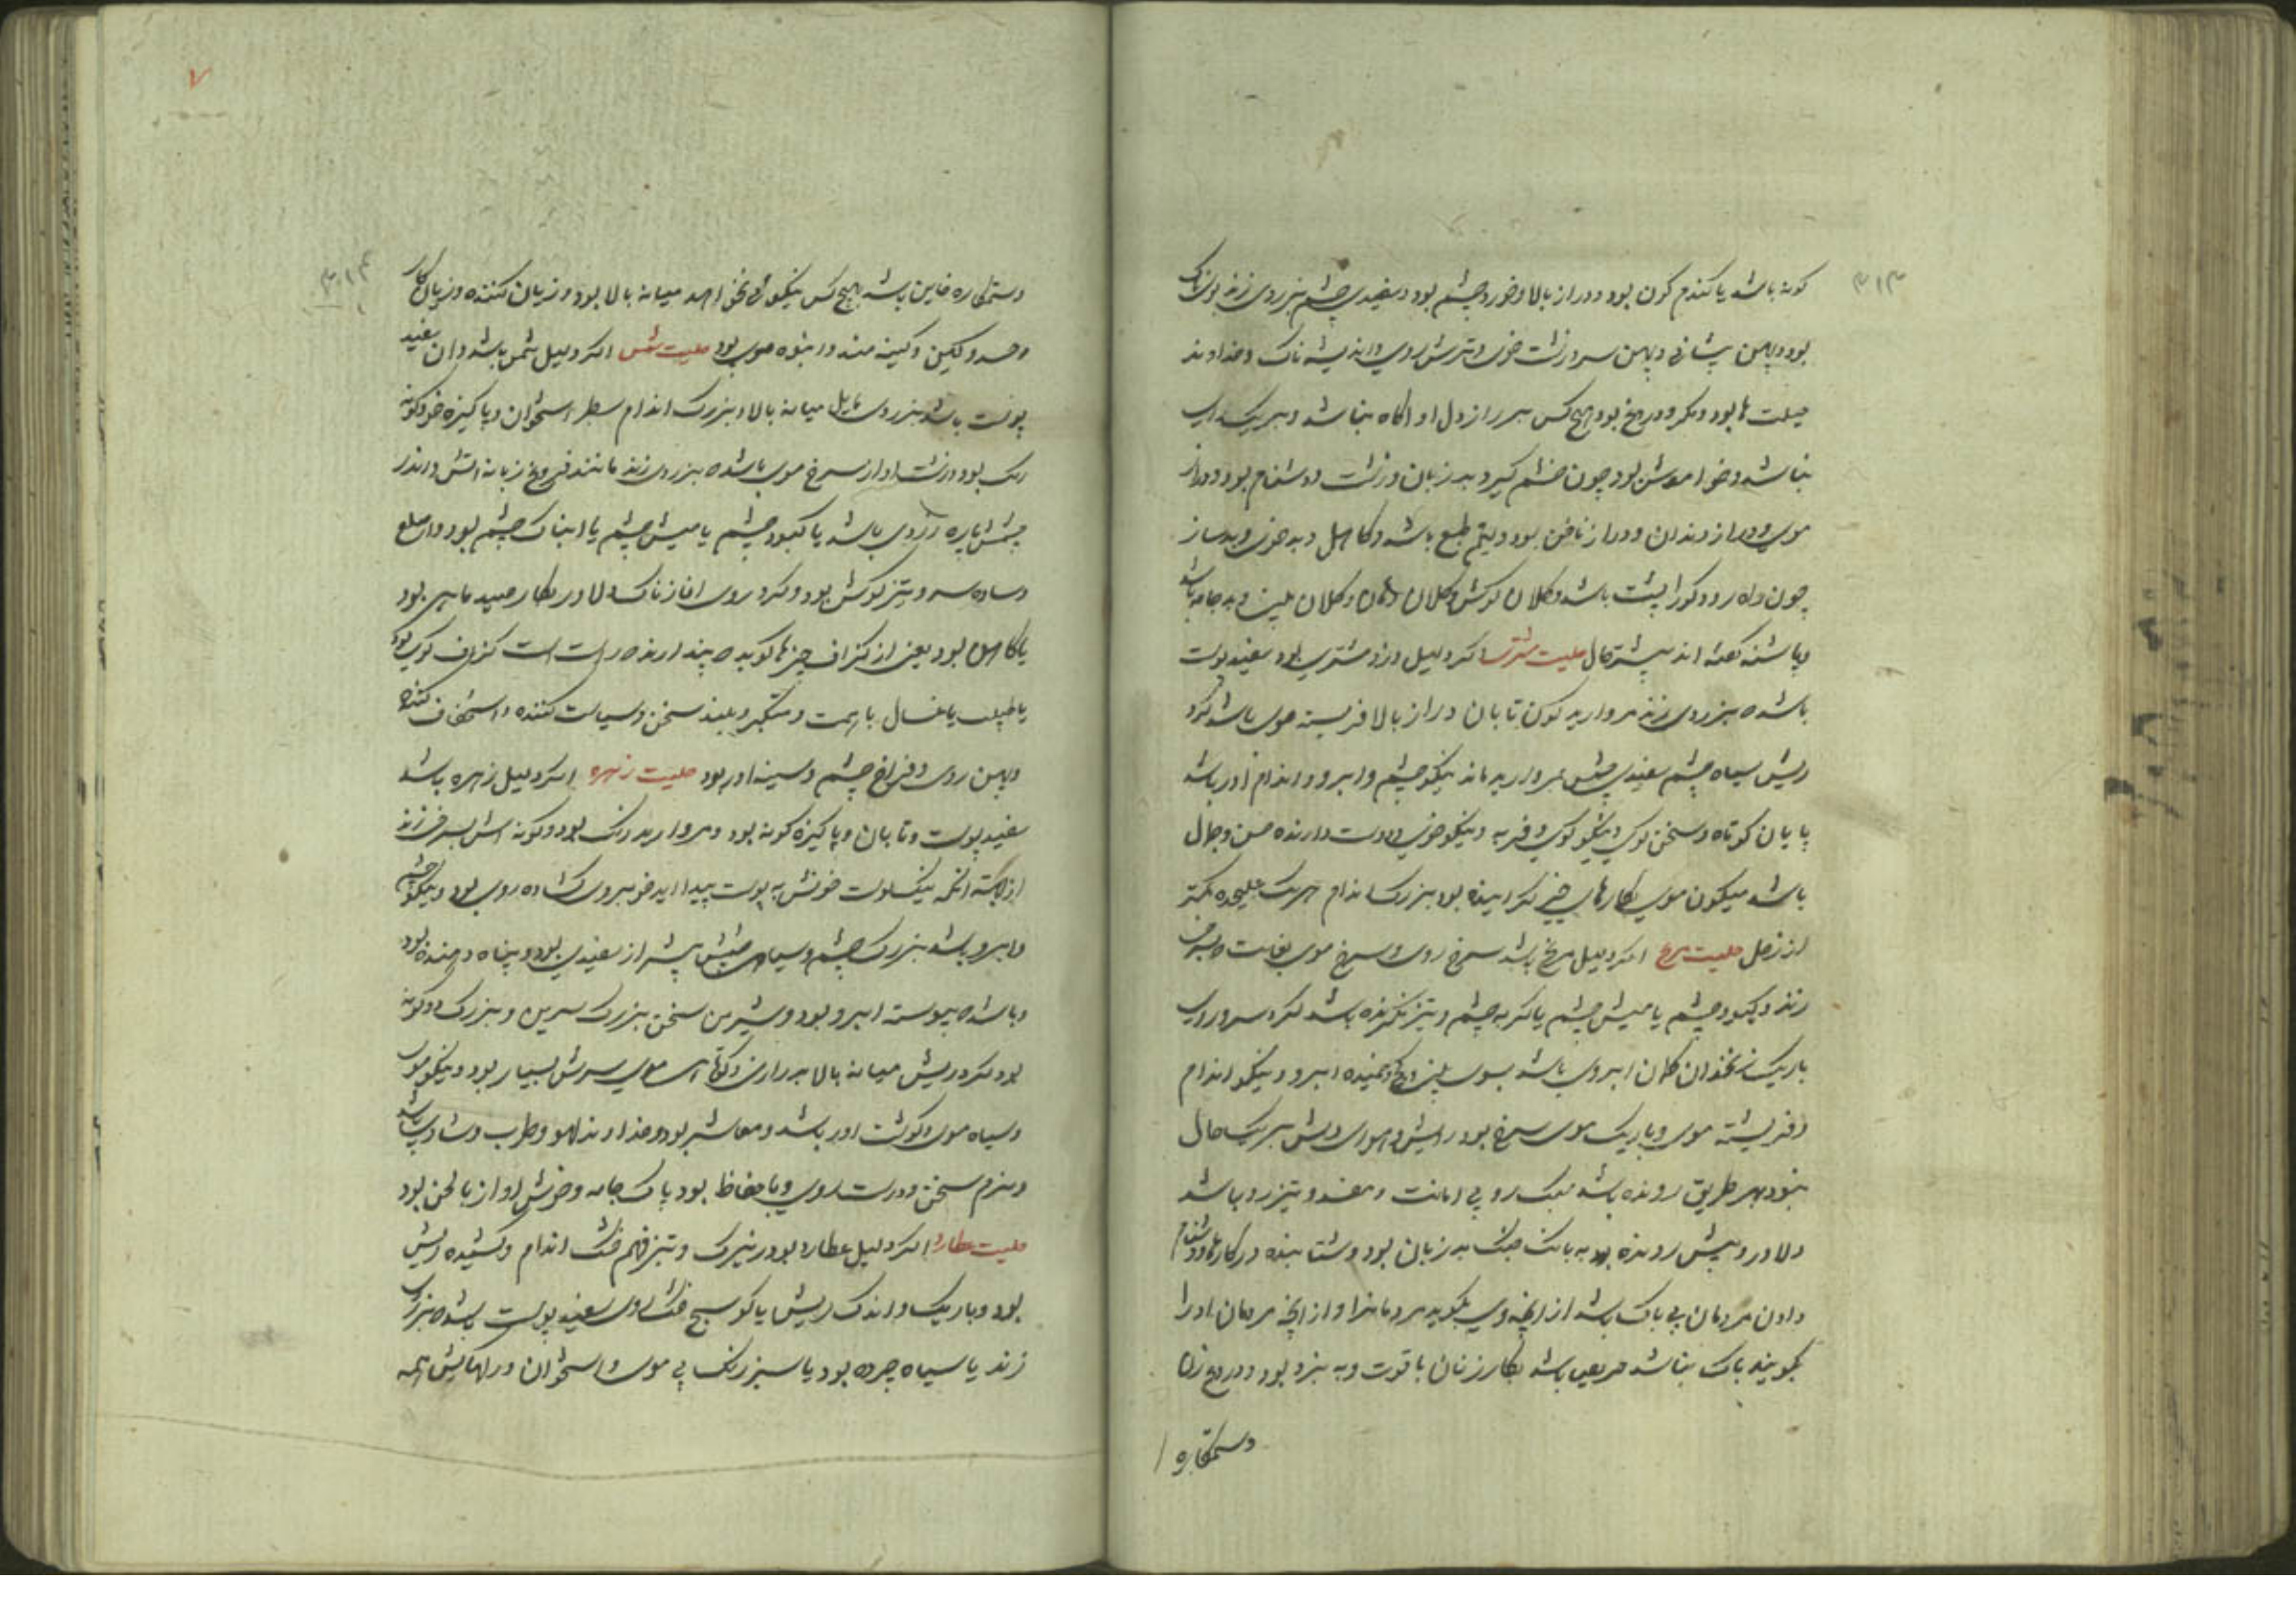 ۳۱۳
کونه باشد یا کندم کون بود و دراز بالا و خورد چشم بود و سفیدی چشم بزردی زند بوی ناک
بود و پهن پیشانی و پهن سر و زشت خوی و ترش روی و اندیشه ناک و خداوند
حیلت ها بود و مکر و دروغ بود هیچ کس بر راز دل او اکاه نباشد و بر یک
نباشد و خواموش بود چون خشم کیرد بد زبان و زشت و دشنام بود و دراز
موی و دراز دندان و دراز ناخن بود و لیٔم طبع باشد و کاهل و بد خوی و بد ساز
چون راه رود کوژا پشت باشد و کلان کوش و کلان دهان و کلان بینی و بد جامه باشد
و پاشنه کفته اند بیشتر حال حلیت مشتری اکر دلیل دزد مشتری بود سفید پوست
باشد که بزردی زند مروارید کون تابان دراز بالا فربسته موی باشد کرد
ریش سیاه چشم سفیدی چشمش بمروارید ماند نیکو چشم و ابرو و اندام اور باشد
پایان کوتاه و سخن کوی و نیکو کوی و فربه و نیکو خوی و دوست دارنده حسن و جمال
باشد میکون موی بکارهای خیر کراینده بود بزرک اندام
از زحل حلیت مریخ اکر دلیل مریخ باشد سرخ روی و سرخ موی بغایت که بسرخی
زند و کبود چشم یا میش چشم یا کربه چشم و تیز نکرنده باشد کرد سر و روی
باریک زنخدان کلان ابروی باشد بسوی بینی و خمیده ابرو و نیکو اندام
و فربشته موی و باریک موی سرخ بود ریش و موی ریش بر یک حال
نبود بهر طریق رونده باشد سبک رو بی امانت و مفسد و تیز رو باشد
دلاور و پیش رونده بود به بانک جنک بد زبان بود و شتابنده در کارها و دشنام
دادن مردمان بی باک باشد از انچه وی بکوید مردمانرا و از انچه مردمان او را
بکویند باک نباشد حریص باشد بکار زنان با قوت و به نبرد بود و دروغ زن
و ستمکاره
۷
۳۱۴
و ستمکاره خاین باشد هیچ کس نیکوئی نخواهد میانه بالا بود و زیان کننده و زیان کار
و حسد و لکین و کینه مند و انبوه موی بود حلیت شمس اکر دلیل شمس باشد و ان سفید
پوست باشد بزردی مایل میانه بالا و بزرک اندام سطبر استخوان و پاکیزه خو و کونه
رنک بود و زشت اواز سرخ موی باشد که بزردی زند مانند فروغ زبانه اتش و اندر
چشمش پاره زردی باشد یا کبود چشم یا میش چشم یا ابناک چشم بود و اصلع
و ساده سر و تیز کوش بود و کرد روی اغاز ناک دلاور بکار صید ماهر بود
یا کاهن بود یعنی از کزاف چیزها کوید که پندارند که راست است کزاف کوی بود
یا طبیب یا غسال با همت و متکبر و بلند سخن و سیاست کننده و استخفاف کننده
و پهن روی و فراخ چشم و سینه اور بود حلیت زهره اکر دلیل زهره باشد
سفید پوست و تابان و پاکیزه کونه بود و مروارید رنک بود و کونه اش بسرخی زند
از انکه انکه نیک پوست خونش به پوست پیدا اید خوبروی کشاده روی بود و نیکو چشم
و ابرو باشد بزرک چشم و سیاهی چشمش بیشتر از سفیدی بود و پناه دهنده بود
و باشد که پیوسته ابرو بود و شیرین سخن بزرک سرین و بزرک
بود کرد ریش میانه بالا بدرازی و کوتاهی موی سرش بسیار بود و نیکو موی
و سیاه موی و کوشت اور باشد و معاشر بود و خداوند لهو و طرب و شادی باشد
و نرم سخن و درست روی و با حفاظ بود پاک جامه و خوش اواز با لحن بود
حلیت عطارد اکر دلیل عطارد بود زیرک و تیز فهم خشک اندام و کشیده ریش
بود و باریک و اندک ریش یا کوسج خشک روی سفید پوست باشد که بزردی
زند یا سیاه چرده بود یا سبز رنک بی موی و استخوان و رکهایش همه